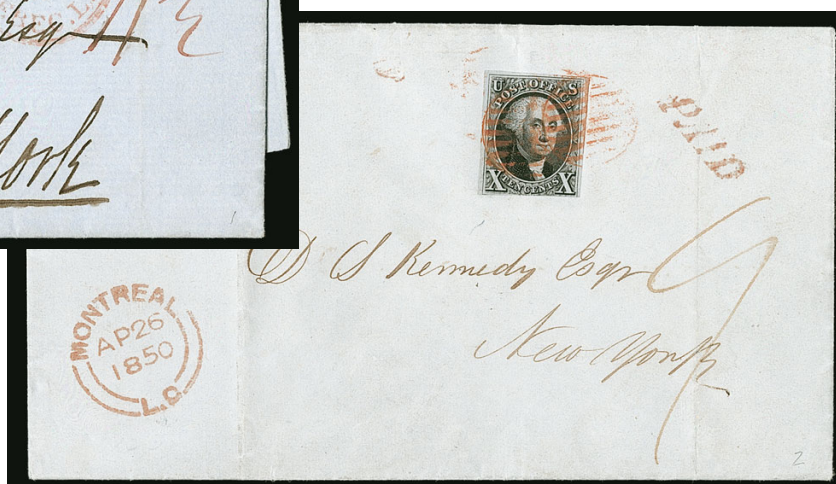 Esqr
York
U S
POST OFFICE
X TEN CENTS X
PAID
D S Kennedy Esqr
New York
MONTREAL
AP 26
1850
L.C.
2